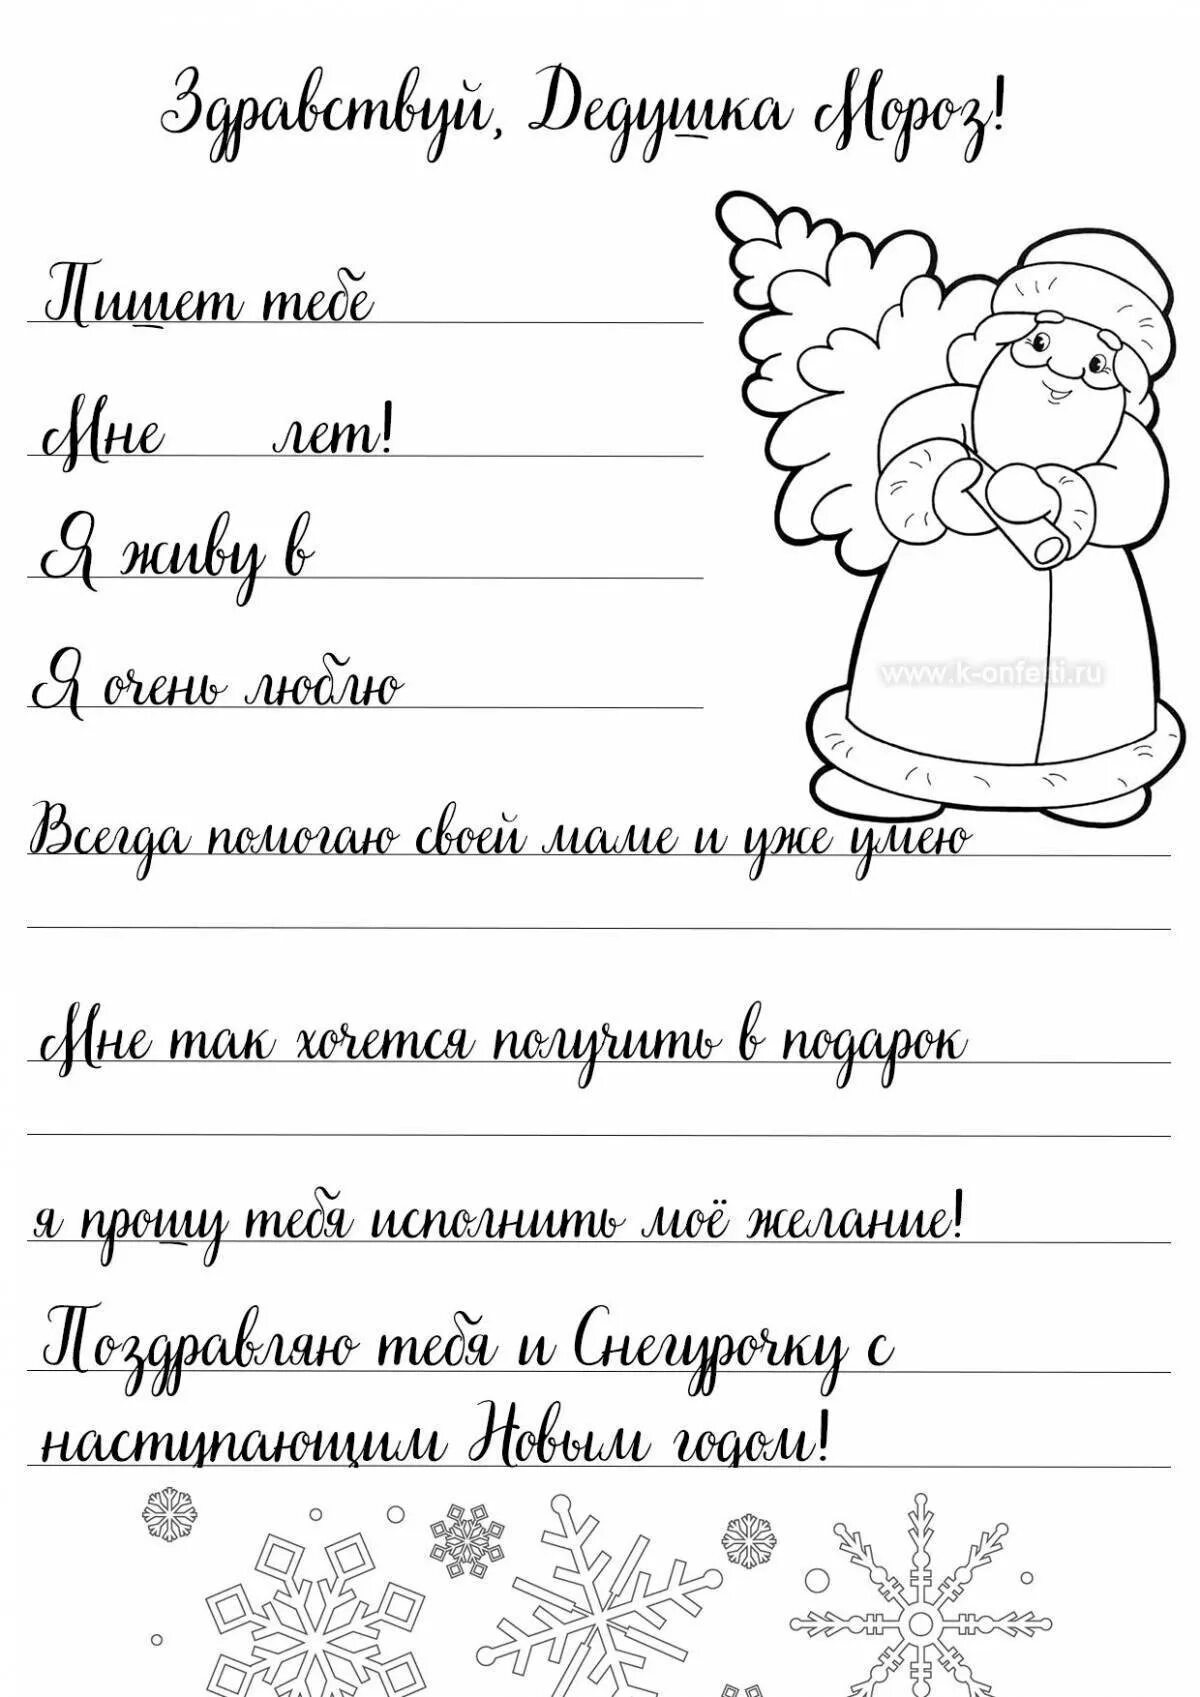 Здравствуй, Дедушка Мороз!
Пишет тебе
Мне лет!
Я живу в
Я очень люблю
www.k-onfetti.ru
Всегда помогаю своей маме и уже умею
Мне так хочется получить в подарок
я прошу тебя исполнить моё желание!
Поздравляю тебя и Снегурочку с
наступающим Новым годом!